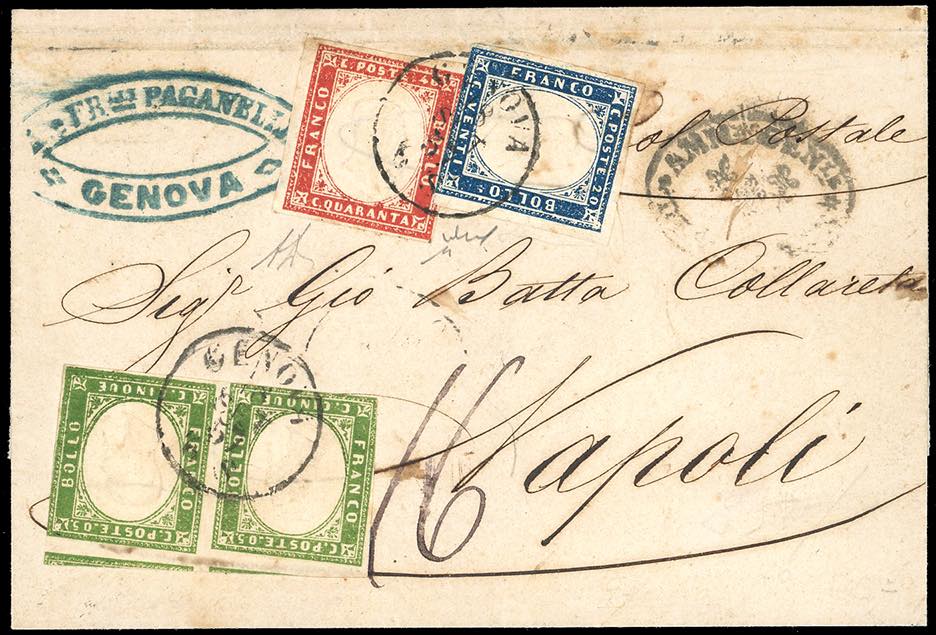 FR.lli PAGANELL
GENOVA
C. POSTE 40
FRANCO
BOLLO
C. QUARANTA
FRANCO
C. POSTE 20
BOLLO
C. VENTI
GENOVA
Col Postale
AMM
Sigr Gio Batta Collareta
GENOVA
C. CINQUE
BOLLO
FRANCO
C. POSTE. 05
C. CINQUE
BOLLO
FRANCO
C. POSTE. 05
16
Napoli